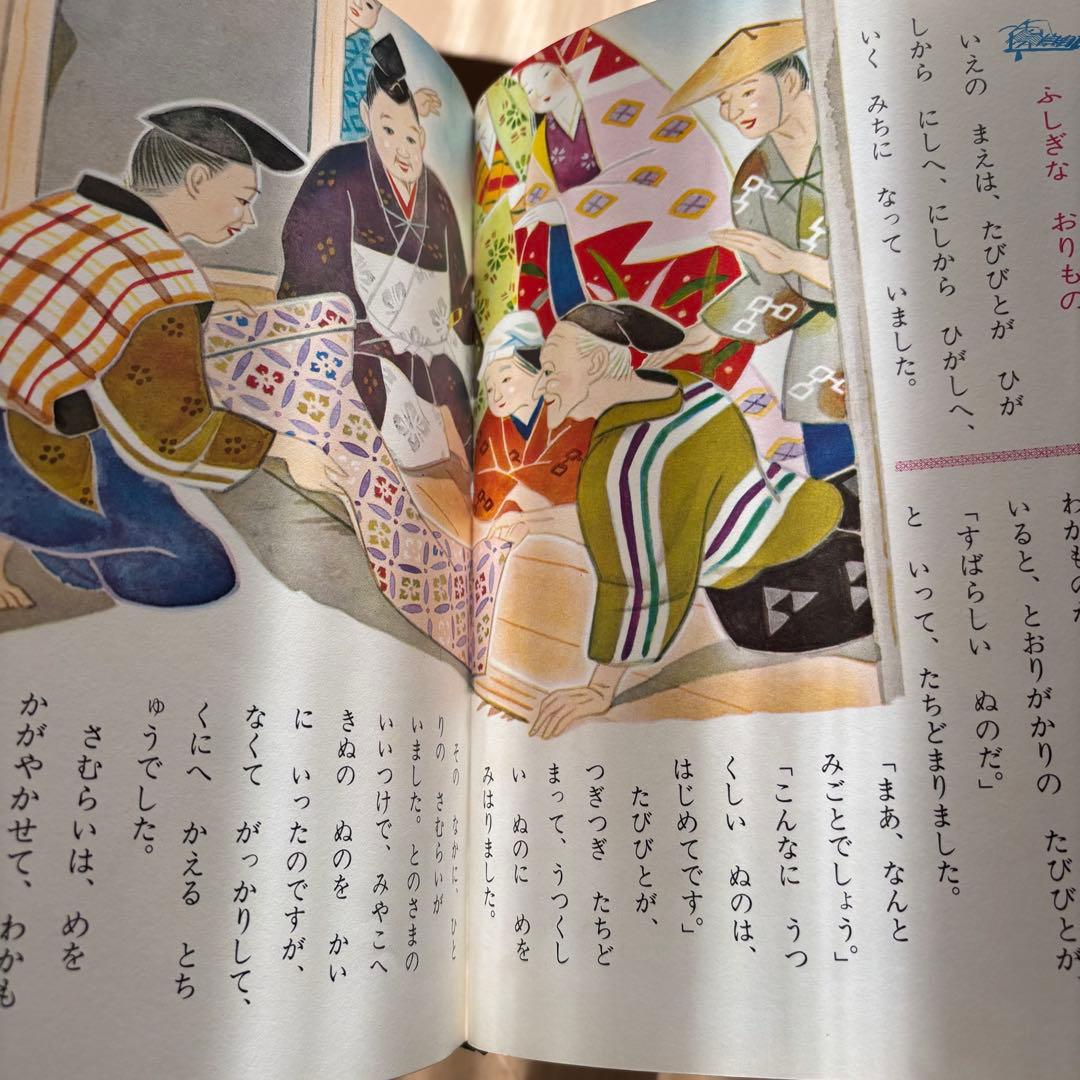 ふしぎな おりもの
いえの まえは、たびびとが ひが
しから にしへ、にしから ひがしへ、
いく みちに なって いました。
いると、とおりがかりの たびびとが、
「すばらしい ぬのだ。」
と いって、たちどまりました。
「まあ、なんと
みごとでしょう。」
「こんなに うつ
くしい ぬのは、
はじめてです。」
たびびとが、
つぎつぎ たちど
まって、うつくし
い ぬのに めを
みはりました。
その なかに、ひと
りの さむらいが
いました。とのさまの
いいつけで、みやこへ
きぬの ぬのを かい
に いったのですが、
なくて がっかりして、
くにへ かえる とち
ゅうでした。
さむらいは、めを
かがやかせて、わかも